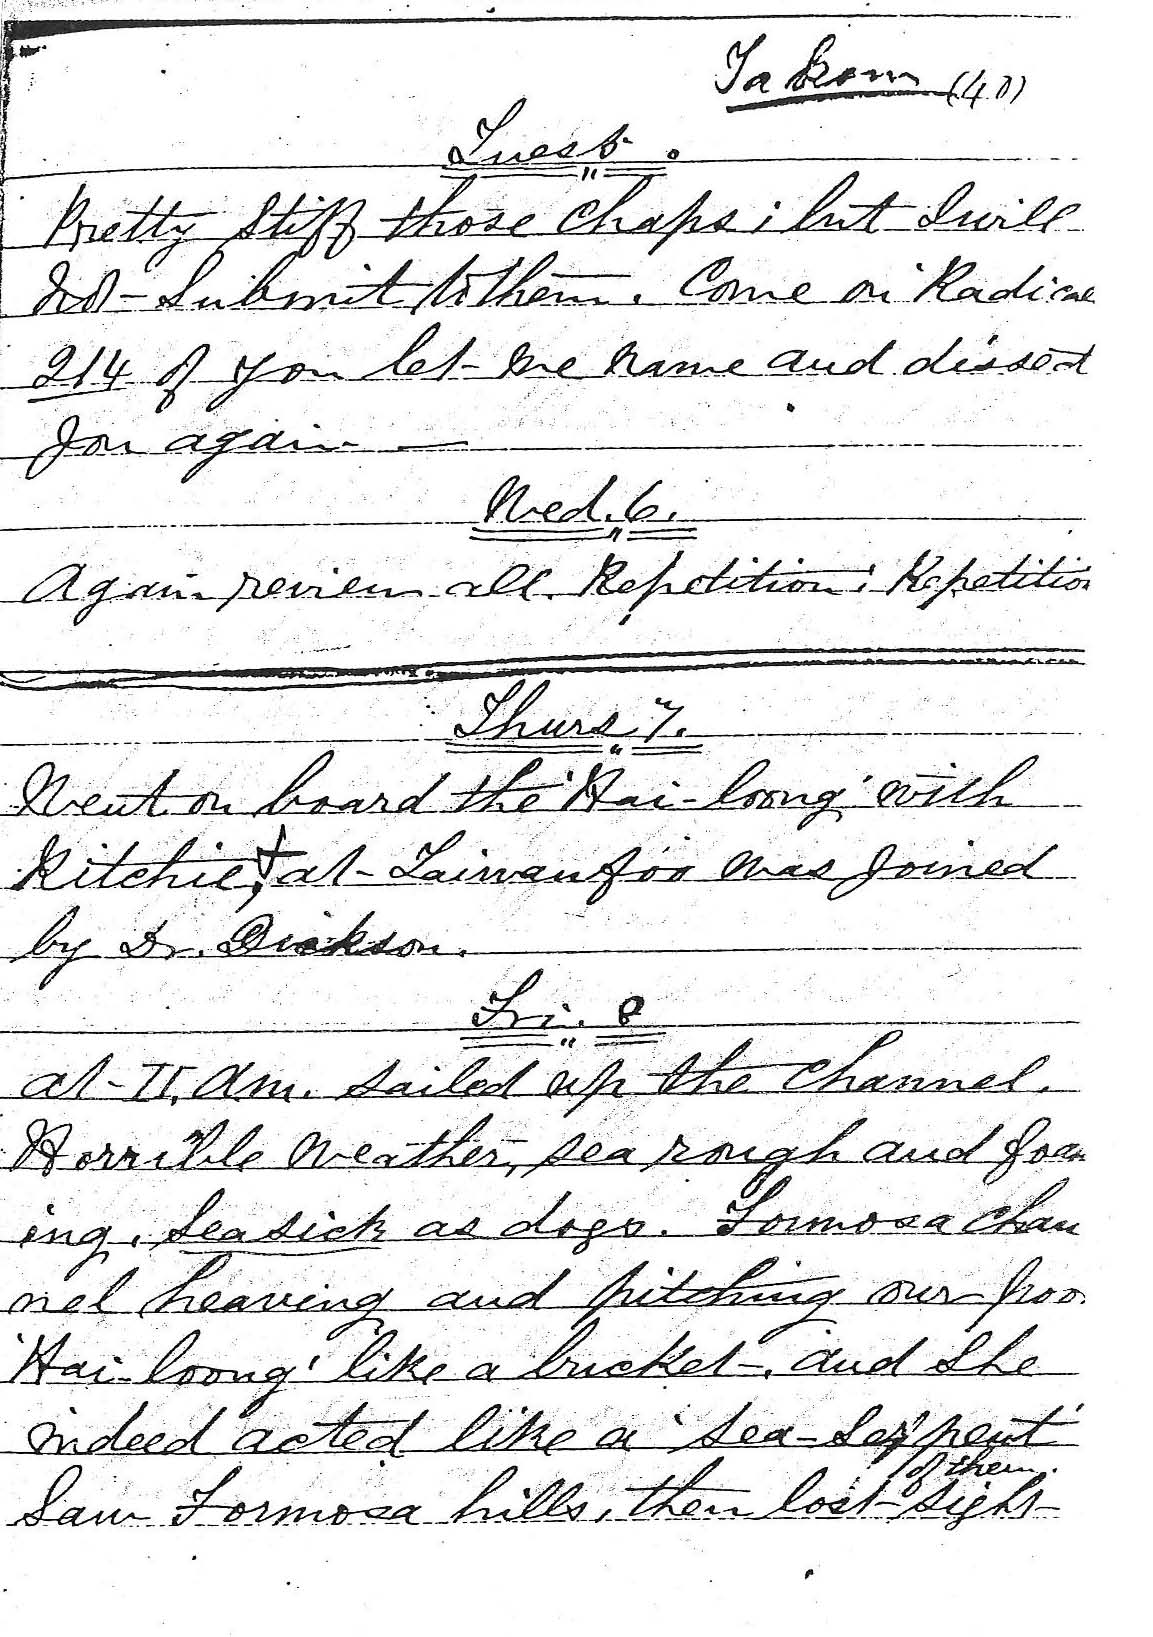 Takow (40)
Tues 5.
Pretty stiff those chaps; but I will
not submit to them. Come on Radical
214 of you let me name and dissect
you again —
Wed. 6.
Again review all. Repetition! Repetition
Thurs 7.
Went on board the 'Hai-loong' with
Ritchie, & at Taiwanfoo was joined
by Dr. Dickson.
Fri. 8
at 11, Am. sailed up the channel.
Horrible weather, sea rough and foam
ing, sea sick as dogs. Formosa chan
nel heaving and pitching our poor
'Hai-loong' like a bucket, and she
indeed acted like a 'sea-serpent'
of them.
Saw Formosa hills, then lost sight